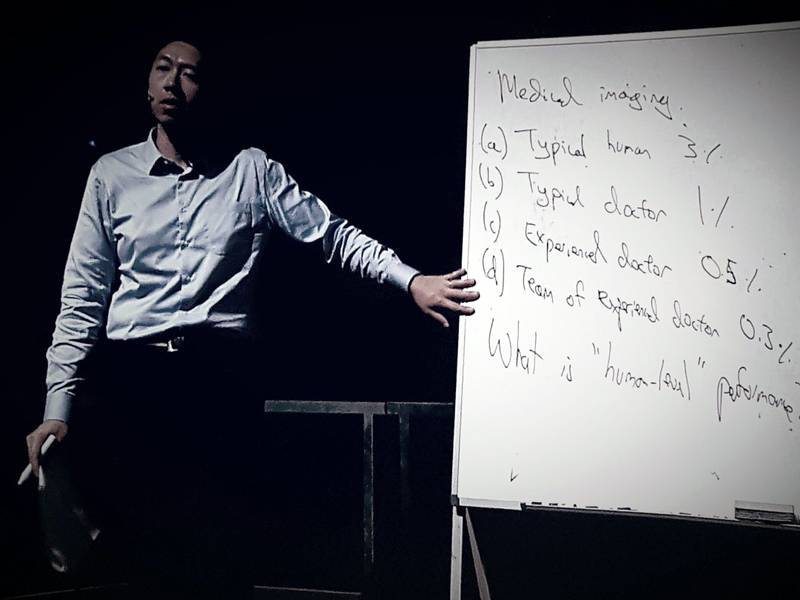 Medical imaging.
(a) Typical human 3%
(b) Typical doctor 1%.
(c) Experienced doctor 0.5%
(d) Team of experienced doctor 0.3%
What is "human-level" performance?